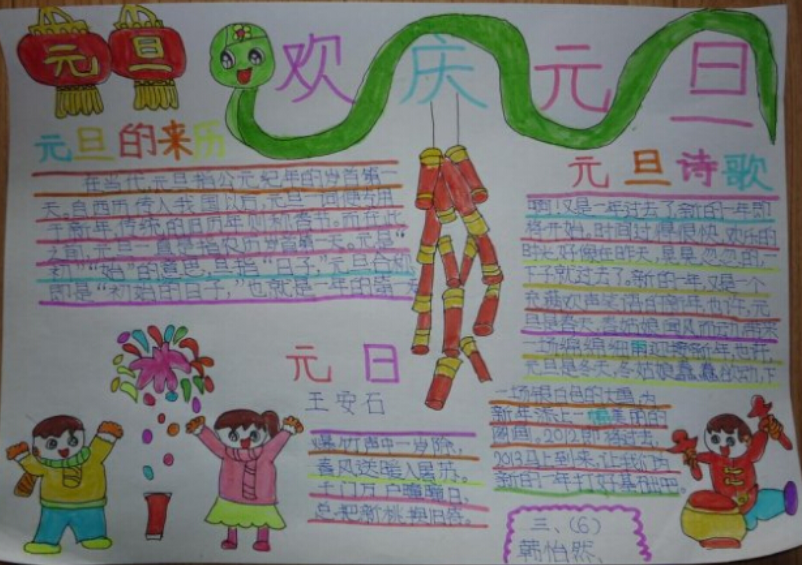 元旦
欢庆元旦
元旦的来历
在当代,元旦指公元纪年的岁首第一
天。自西历传入我国以后,元旦一词便专用
于新年,传统的旧历年则称春节。而在此
之前,元旦一直是指农历岁首第一天。元是“
初”“始”的意思,旦指“日子”,元旦合称
即是“初始的日子,”也就是一年的第一天
元旦诗歌
啊!又是一年过去了新的一年即
将开始,时间过得很快,欢乐的
时光,好像在昨天,
下子就过去了。新的一年,又是一个
充满欢声笑语的新年,也许,元
旦是春天,春姑娘闻风而动,带来
一场绵绵细雨迎接新年,也许,
元旦是冬天,冬姑娘蠢蠢欲动,下
一场银白色的大雪,为
新年添上一幅美丽的
图画。2012即将过去,
2013马上到来,让我们为
新的一年打好基础吧。
元日
王安石
爆竹声中一岁除,
春风送暖入屠苏。
千门万户曈曈日,
总把新桃换旧符。
三、(6)
韩怡然,